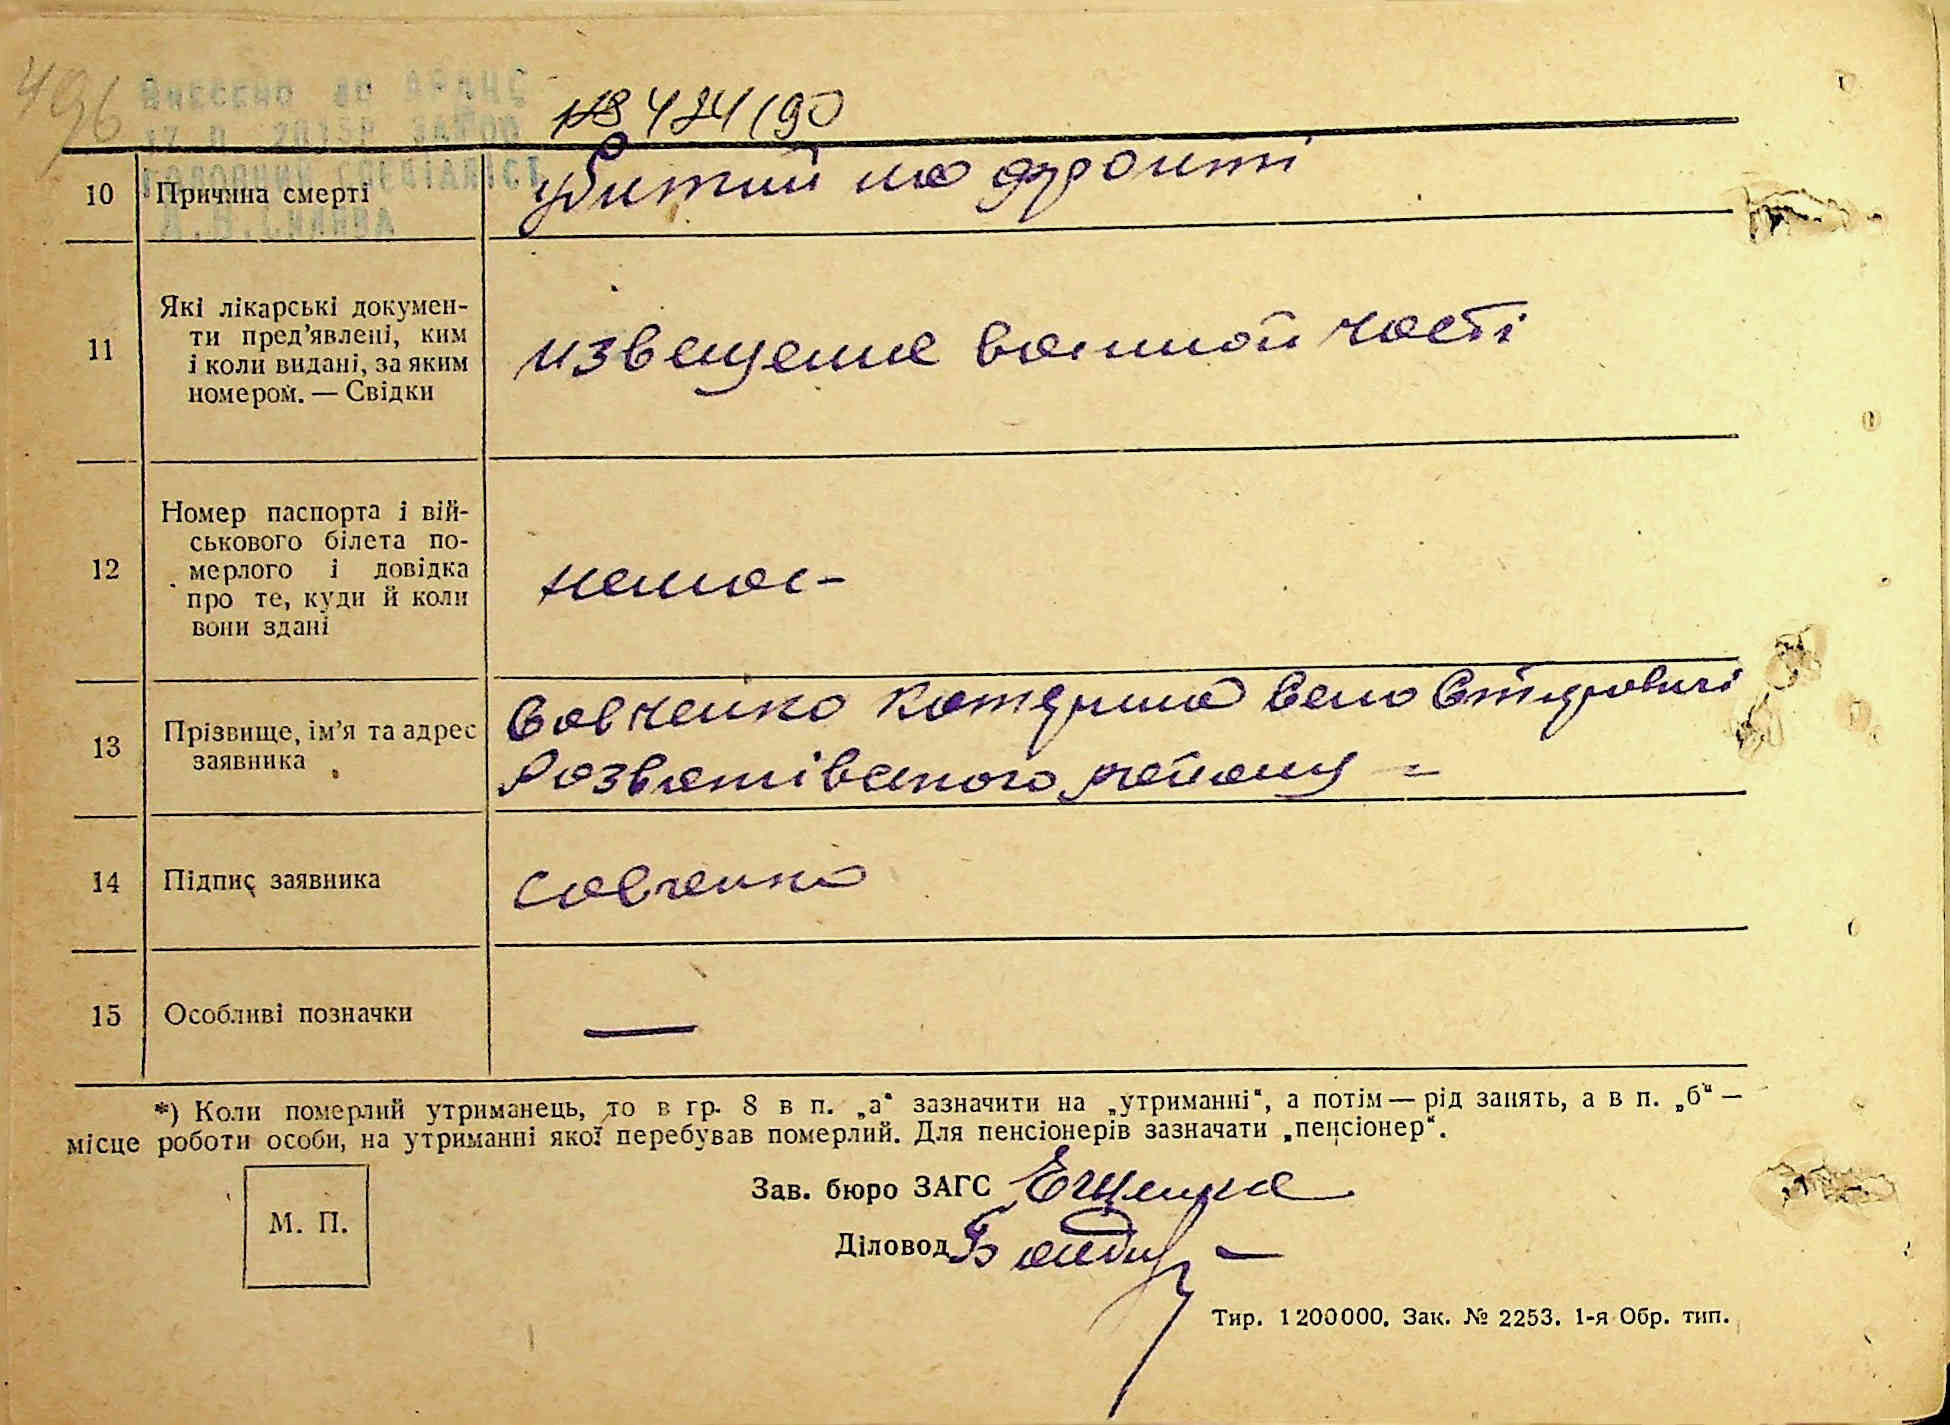 496
Внесено до ДРАЦС
головний спеціаліст
№ 484 (90
10 Причина смерті убитий на фронті
11 Які лікарські докумен-
ти пред’явлені, ким
і коли видані, за яким
номером. — Свідки
извещение воинной части
12 Номер паспорта і вій-
ськового білета по-
мерлого і довідка
про те, куди й коли
вони здані
немає -
13 Прізвище, ім’я та адрес
заявника
Савченко Катерина село
Розваживського району =
14 Підпис заявника Савченко
15 Особливі позначки —
*) Коли померлий утриманець, то в гр. 8 в п. „а“ зазначити на „утриманні“, а потім — рід занять, а в п. „б“ —
місце роботи особи, на утриманні якої перебував померлий. Для пенсіонерів зазначати „пенсіонер“.
М. П.
Зав. бюро ЗАГС
Діловод
Тир. 1200000. Зак. № 2253. 1-я Обр. тип.